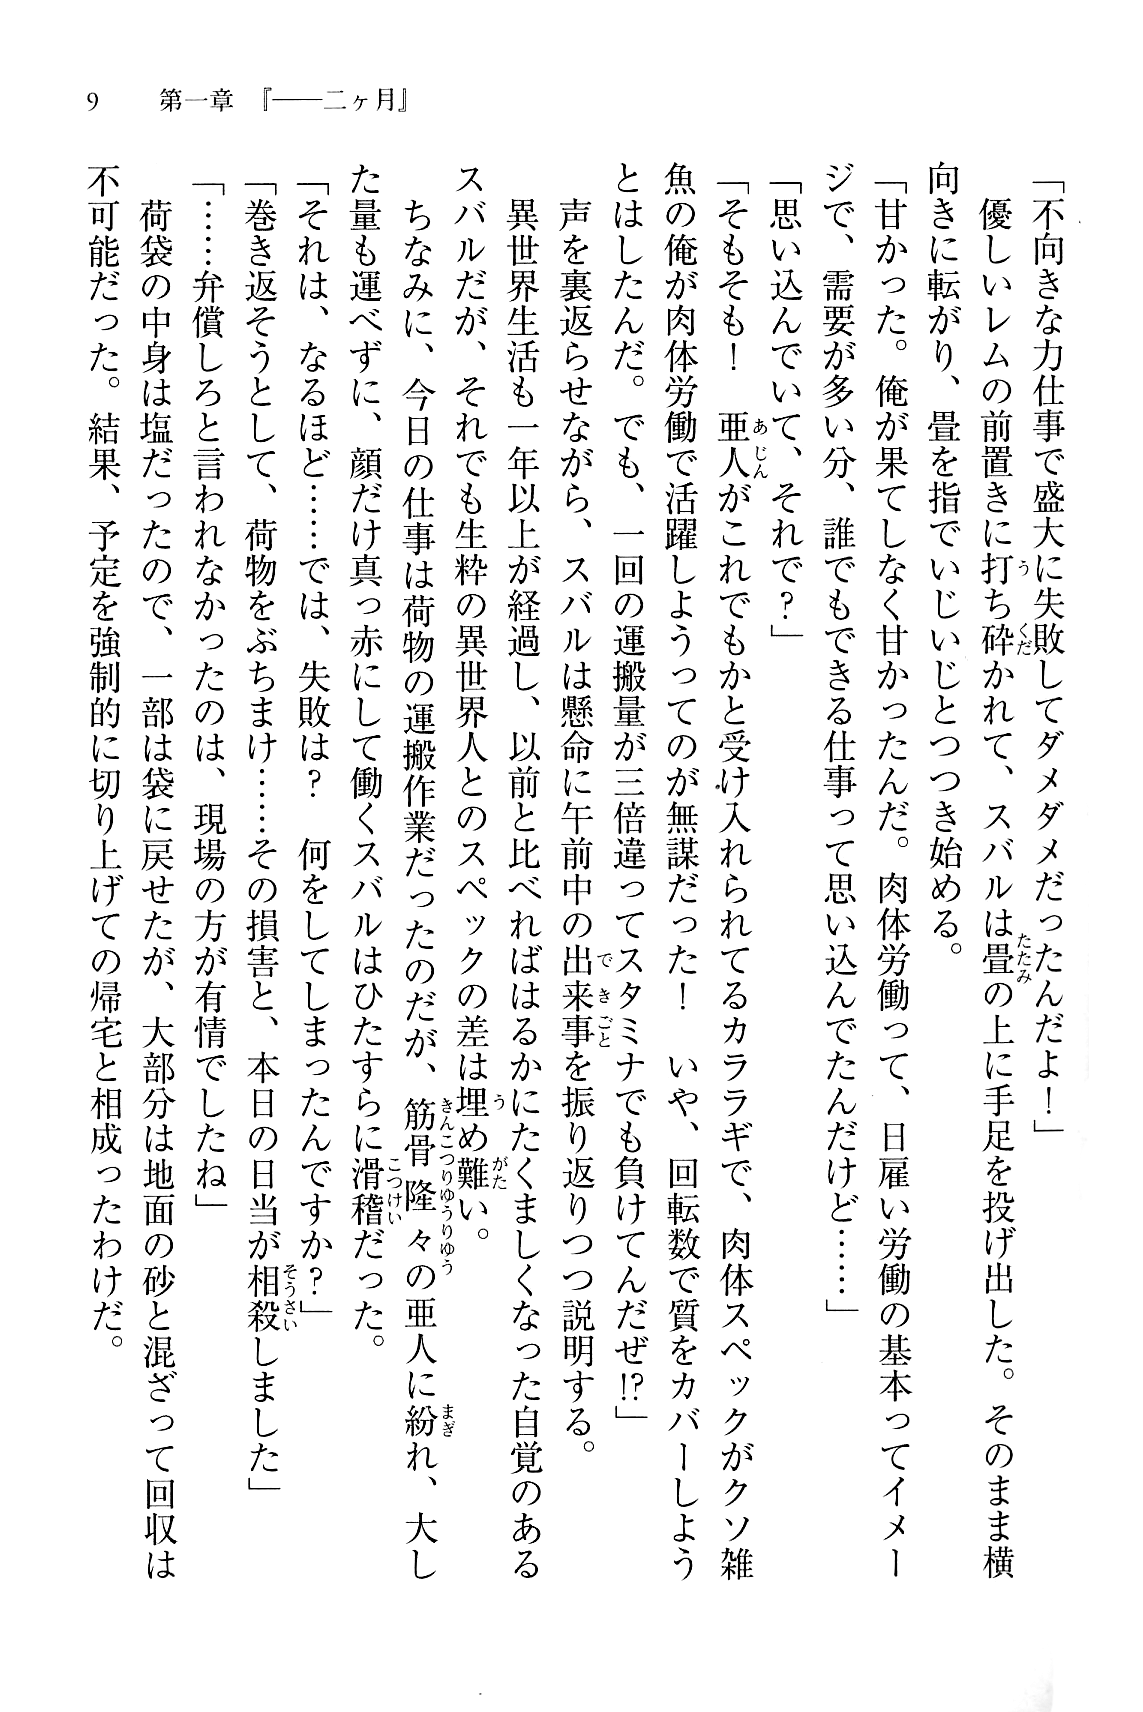 9　第一章　『――二ヶ月』
「不向きな力仕事で盛大に失敗してダメダメだったんだよ！」
　優しいレムの前置きに打ち砕かれて、スバルは畳の上に手足を投げ出した。そのまま横
向きに転がり、畳を指でいじいじとつつき始める。
「甘かった。俺が果てしなく甘かったんだ。肉体労働って、日雇い労働の基本ってイメー
ジで、需要が多い分、誰でもできる仕事って思い込んでたんだけど……」
「思い込んでいて、それで？」
「そもそも！　亜人がこれでもかと受け入れられてるカララギで、肉体スペックがクソ雑
魚の俺が肉体労働で活躍しようってのが無謀だった！　いや、回転数で質をカバーしよう
とはしたんだ。でも、一回の運搬量が三倍違ってスタミナでも負けてんだぜ!?」
　声を裏返らせながら、スバルは懸命に午前中の出来事を振り返りつつ説明する。
　異世界生活も一年以上が経過し、以前と比べればはるかにたくましくなった自覚のある
スバルだが、それでも生粋の異世界人とのスペックの差は埋め難い。
　ちなみに、今日の仕事は荷物の運搬作業だったのだが、筋骨隆々の亜人に紛れ、大し
た量も運べずに、顔だけ真っ赤にして働くスバルはひたすらに滑稽だった。
「それは、なるほど……では、失敗は？　何をしてしまったんですか？」
「巻き返そうとして、荷物をぶちまけ……その損害と、本日の日当が相殺しました」
「……弁償しろと言われなかったのは、現場の方が有情でしたね」
　荷袋の中身は塩だったので、一部は袋に戻せたが、大部分は地面の砂と混ざって回収は
不可能だった。結果、予定を強制的に切り上げての帰宅と相成ったわけだ。